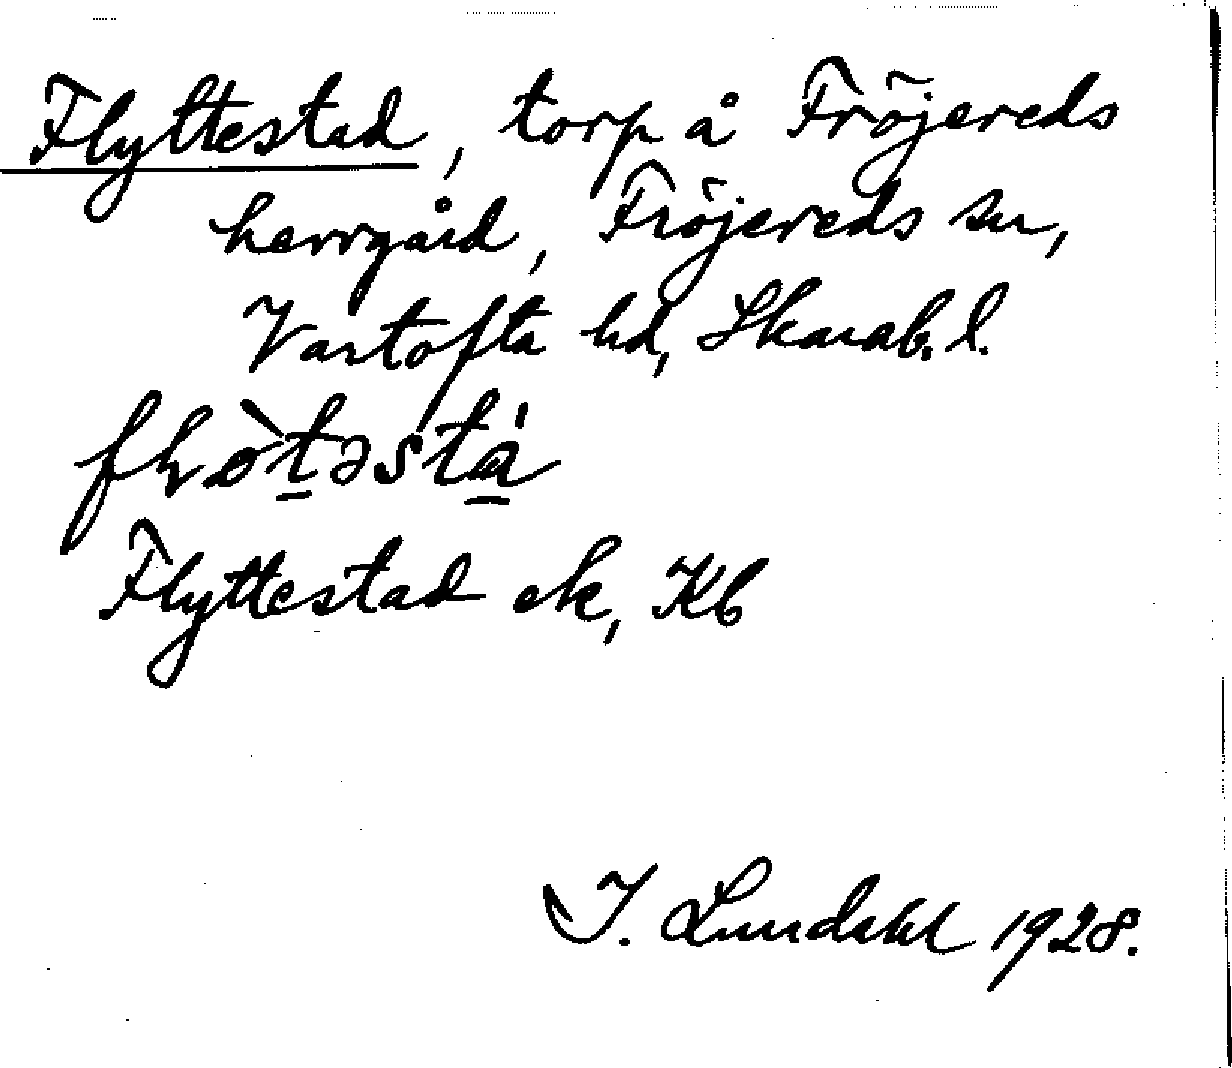 Flyttestad, torp å Fröjereds
herrgård, Fröjereds sn,
Vartofta hd, Skarab. l.
Flyttestad ek, Kb
I. Lundahl 1928.